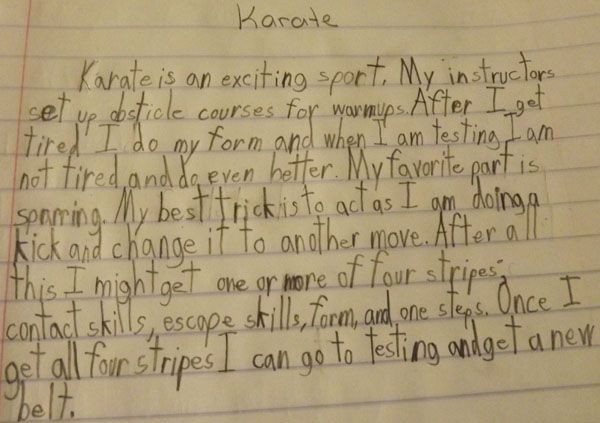 Karate
Karate is an exciting sport. My instructors
set up obsticle courses for warmups. After I get
tired I do my form and when I am testing I am
not tired and do even better. My favorite part is
sparring. My best trick is to act as I am doing a
kick and change it to another move. After all
this I might get one or more of four stripes:
contact skills, escape skills, form, and one steps. Once I
get all four stripes I can go to testing and get a new
belt.